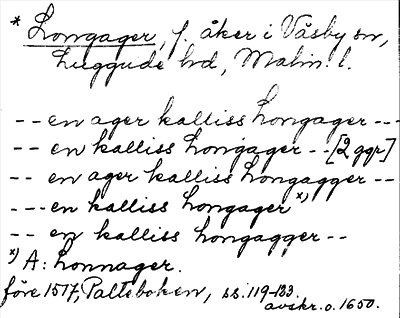 * Longager, f. åker i Väsby sn,
Luggude hd, Malm. l.
-- en ager kalliss Longager ---
-- en kalliss Longager -- [2 ggr]
-- en ager kalliss Longagger --
--- en kalliss Longager x)
-- en kalliss Longagger --
x) A: Lonnager.
före 1517, Palteboken, ss. 119-133.
avskr. o. 1650.